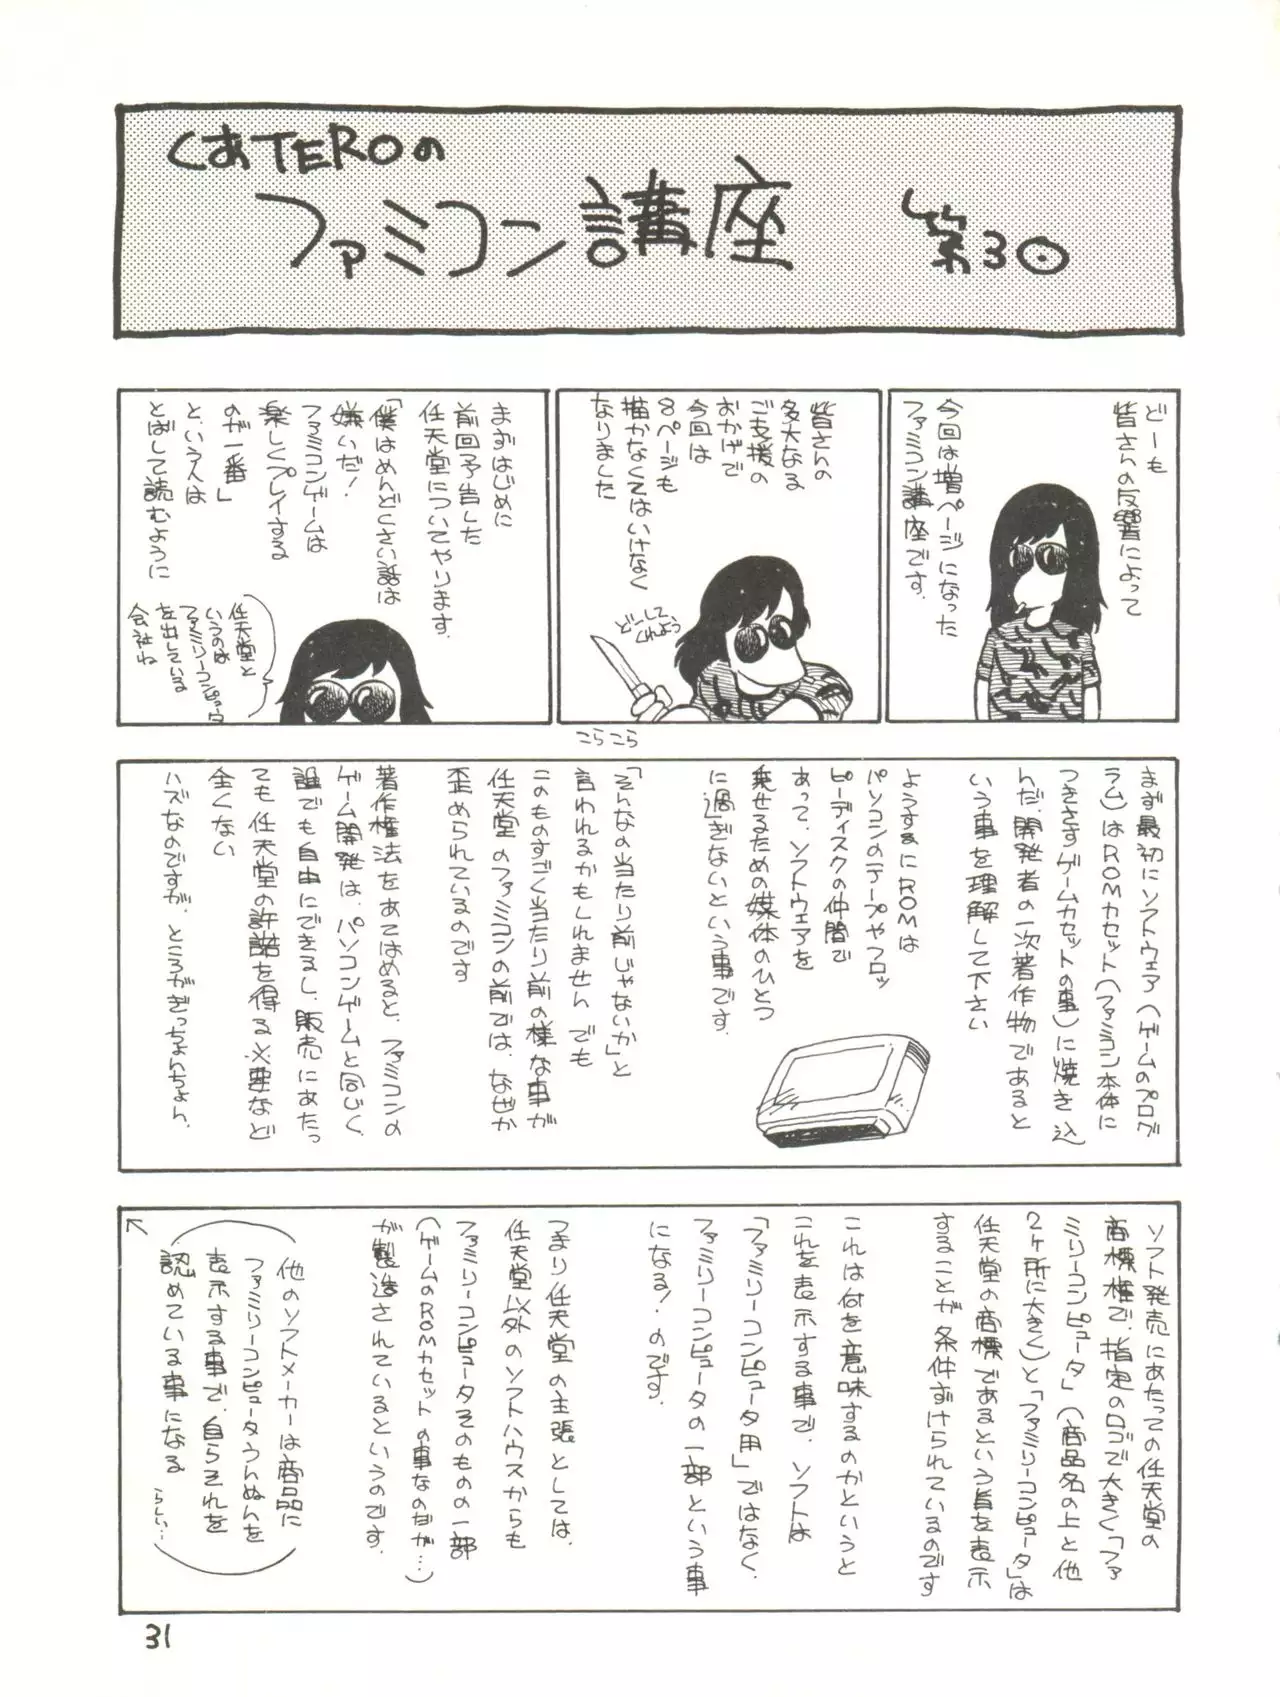 くあTEROの
ファミコン講座 第3◎
どーも
皆さんの反響によって
今回は増ページになった
ファミコン講座です.
皆さんの
多大なる
ご支援の
おかげで
今回は
8ページも
描かなくてはいけなく
なりました
どーして
くれよう
こらこら
まずはじめに
前回予告した
任天堂についてやります.
「僕はめんどくさい話は
嫌いだ!
ファミコンゲームは
楽しくプレイする
のが一番」
という人は
とばして読むように
任天堂と
いうのは
ファミリーコンピュータ
を出している
会社ね
まず最初にソフトウェア(ゲームのプログ
ラム)はROMカセット(ファミコン本体に
つきさすゲームカセットの事)に焼き込
んだ、開発者の一次著作物であると
いう事を理解して下さい
ようするにROMは
パソコンのテープやフロッ
ピーディスクの仲間で
あって、ソフトウェアを
乗せるための媒体のひとつ
に過ぎないという事です.
「そんなの当たり前じゃないか」と
言われるかもしれません でも
このものすごく当たり前の様な事が
任天堂のファミコンの前では、なぜか
歪められているのです
著作権法をあてはめると、ファミコンの
ゲーム開発は、パソコンゲームと同じく、
誰でも自由にできるし、販売にあたっ
ても任天堂の許諾を得る必要など
全くない
ハズなのですが、ところがぎっちょんちょん、
ソフト発売にあたっての任天堂の
商標権で、指定のロゴで大きく「ファ
ミリーコンピュータ」(商品名の上と他
2ヶ所に大きく)と「ファミリーコンピュータ」は
任天堂の商標であるという旨を表示
することが条件ずけられているのです
これは何を意味するのかというと
これを表示する事で、ソフトは
「ファミリーコンピュータ用」ではなく、
ファミリーコンピュータの一部という事
になる!のです.
つまり任天堂の主張としては、
任天堂以外のソフトハウスからも
ファミリーコンピュータそのものの一部
(ゲームのROMカセットの事なのだが…)
が製造されているというのです.
他のソフトメーカーは商品に
ファミリーコンピュータうんぬんを
表示する事で、自らそれを
認めている事になる
らしい…
31